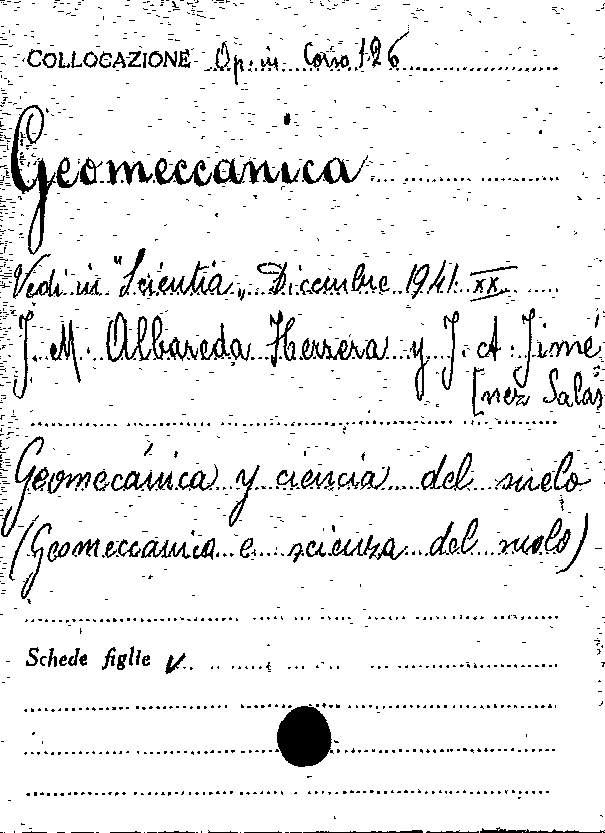 COLLOCAZIONE Op. in Corso 126
Geomeccanica
Vedi in "Scientia„ Dicembre 1941 XX
J. M. Albareda Herrera y J. A. Jimé
[nez Salas
Geomecánica y ciencia del suelo
(Geomeccanica e scienza del suolo)
Schede figlie v